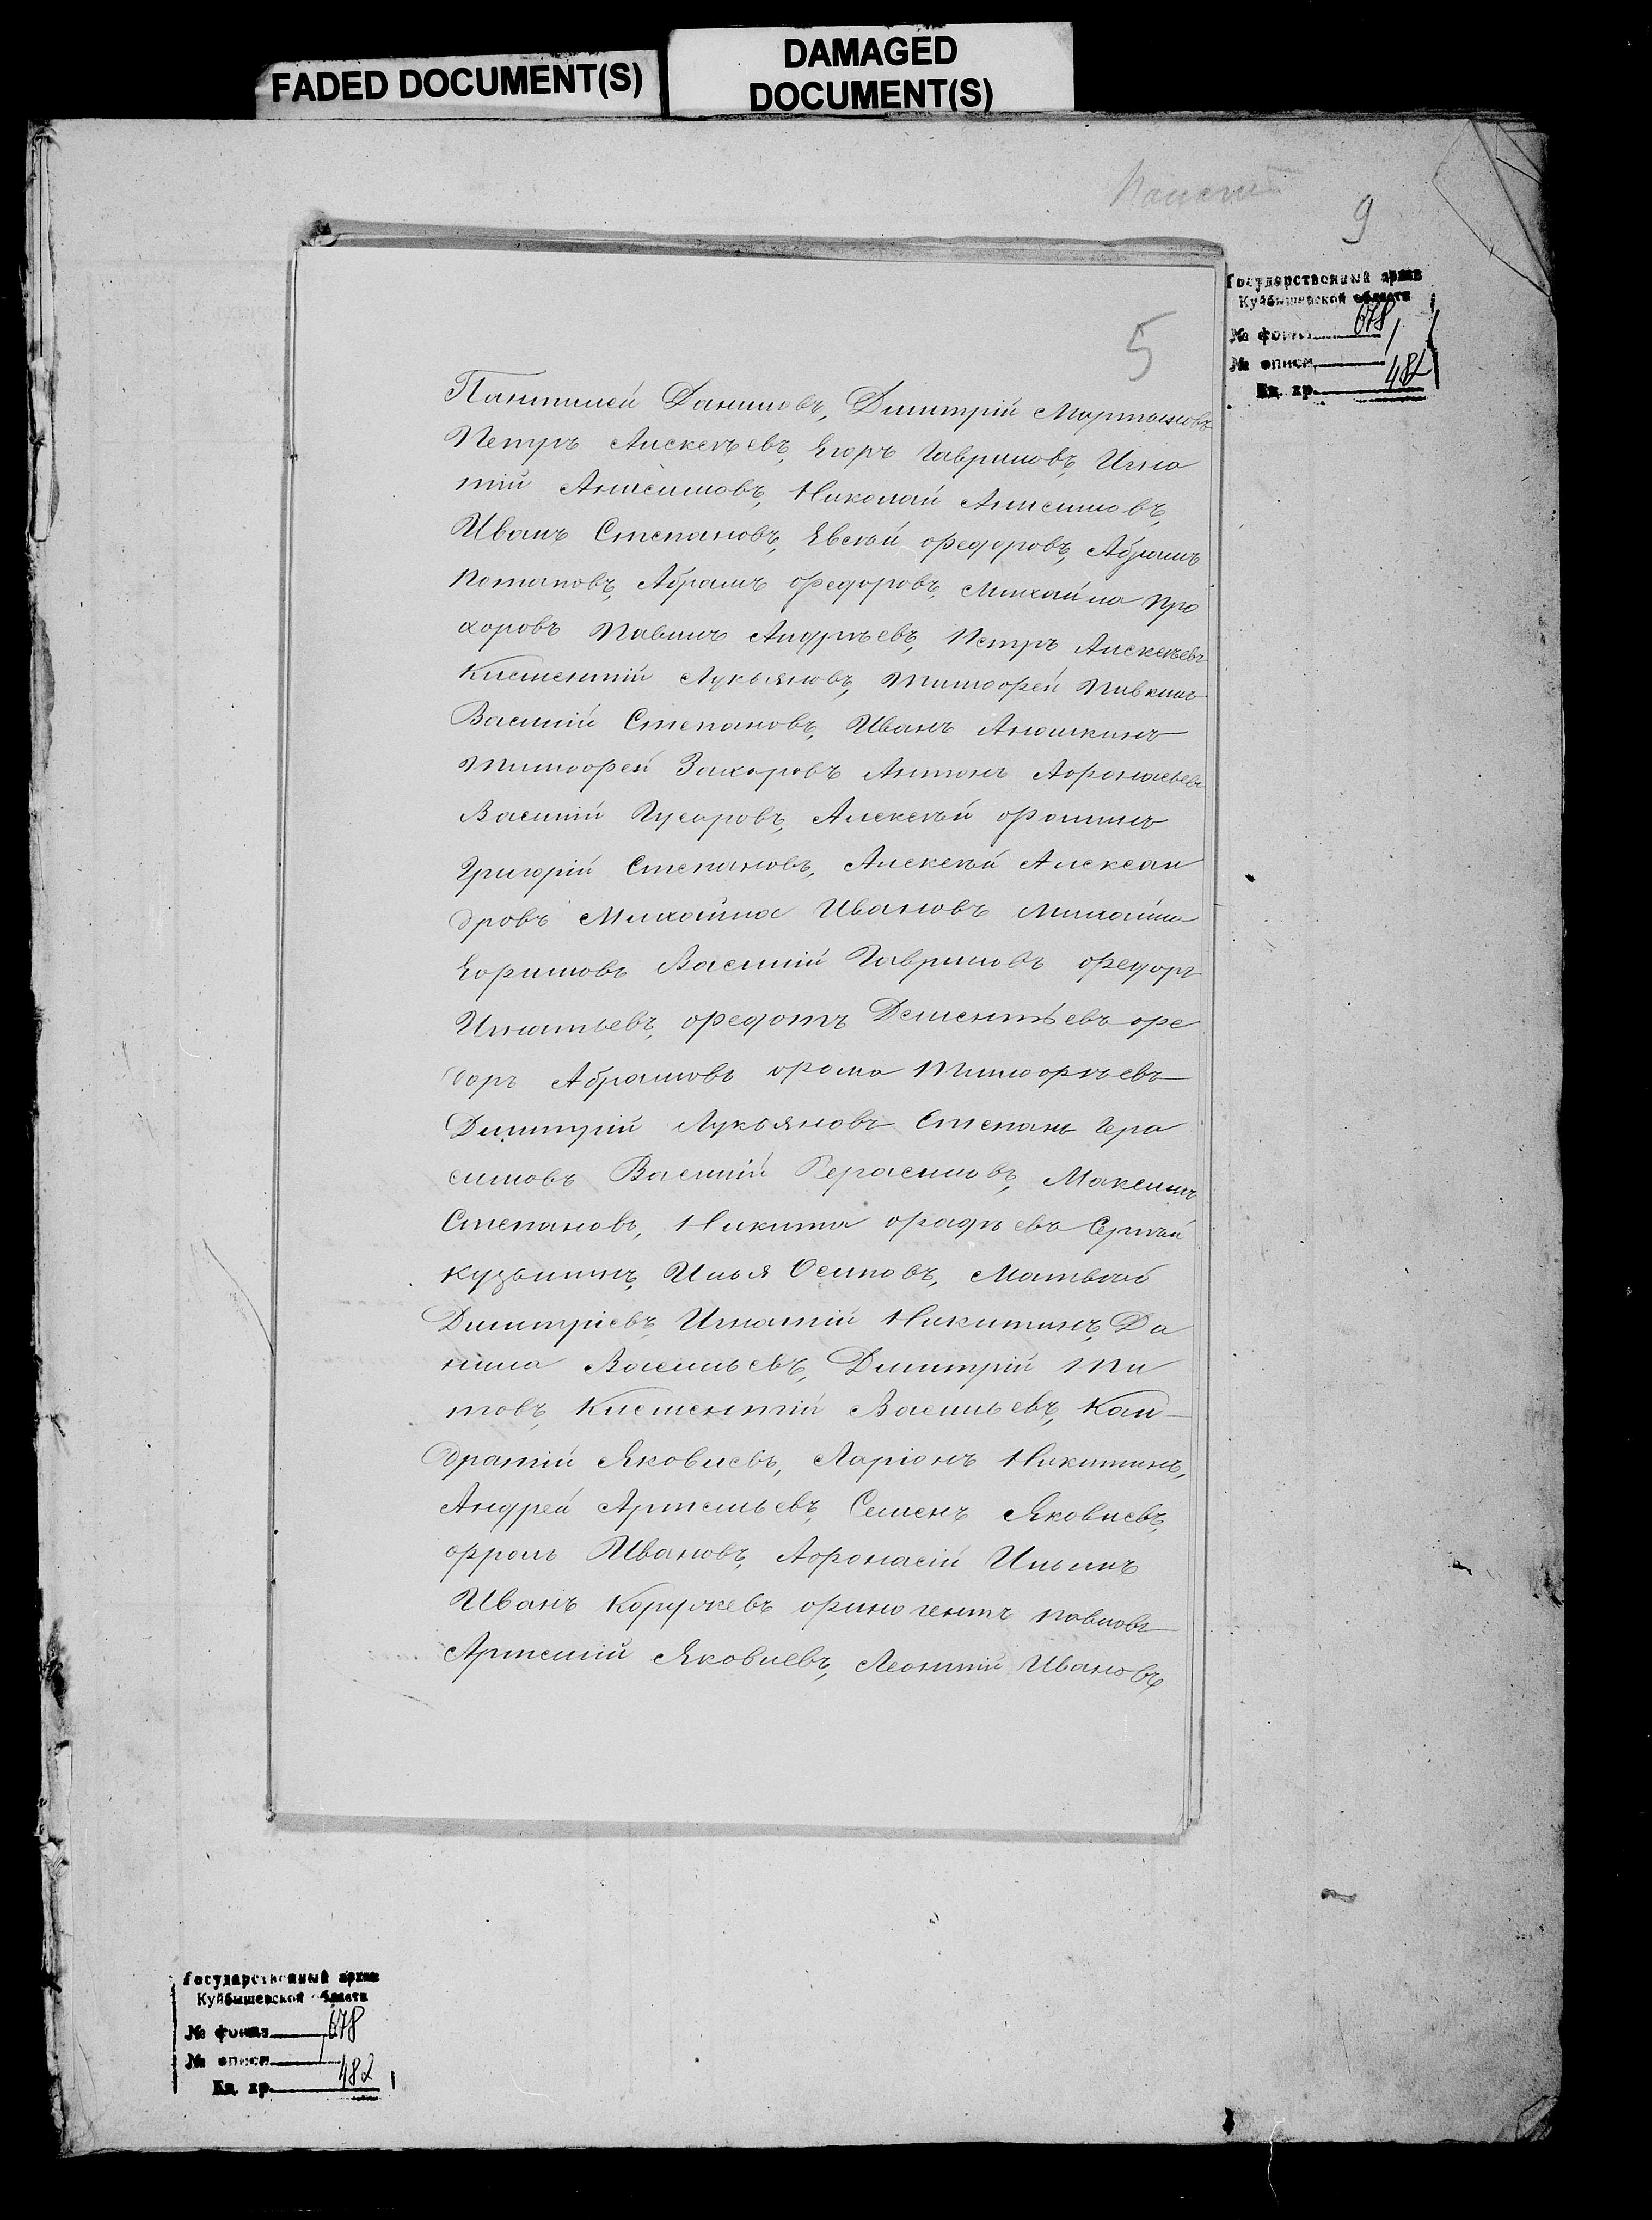 FADED DOCUMENT(S)
DAMAGED
DOCUMENT(S)
9
Государственный архив
Куйбышевской области
№ фонда 678
№ описи 1
Ед. хр. 482
5
Пантилей Даниловъ, Димитрій Мартыновъ
Петръ Алексѣевъ, Егоръ Гавриловъ, Игна
тій Анисимовъ, Николай Анисимовъ,
Иванъ Степановъ, Евсѣй Федоровъ, Абрамъ
Потаповъ, Абрамъ Федоровъ, Михайла Про
хоровъ Павилъ Андрѣевъ, Петръ Алексѣевъ
Климентій Лукьяновъ, Тимофей Пивкинъ
Василій Степановъ, Иванъ Анюшкинъ
Тимофей Захоровъ Антонъ Афонасьевъ
Василій Гусаровъ, Алексѣй Фоминъ
Григорій Степановъ, Алексѣй Алексан
дровъ Михайла Ивановъ Михайла
Ефримовъ Василій Гавриловъ Федоръ
Игнатьевъ, Федотъ Дементьевъ Фе
доръ Абрамовъ Фома Тимофѣевъ
Димитрій Лукьяновъ Степанъ Гера
симовъ Василій Герасимовъ, Максимъ
Степановъ, Никита Фадѣевъ Сергѣй
Кузьминъ, Илья Осиповъ, Матвѣй
Димитріевъ, Игнатій Никитинъ, Да
нила Васильевъ, Димитрій Ти
товъ, Климентій Васильевъ, Кан-
дратій Яковлевъ, Ларіонъ Никитинъ,
Андрей Артемьевъ, Семенъ Яковлевъ,
Фролъ Ивановъ, Афонасій Ильинъ
Иванъ Филогентъ Павловъ
Артемій Яковлевъ, Леонтій Ивановъ,
Государственный архив
Куйбышевской области
№ фонда 678
№ описи 1
Ед. хр. 482